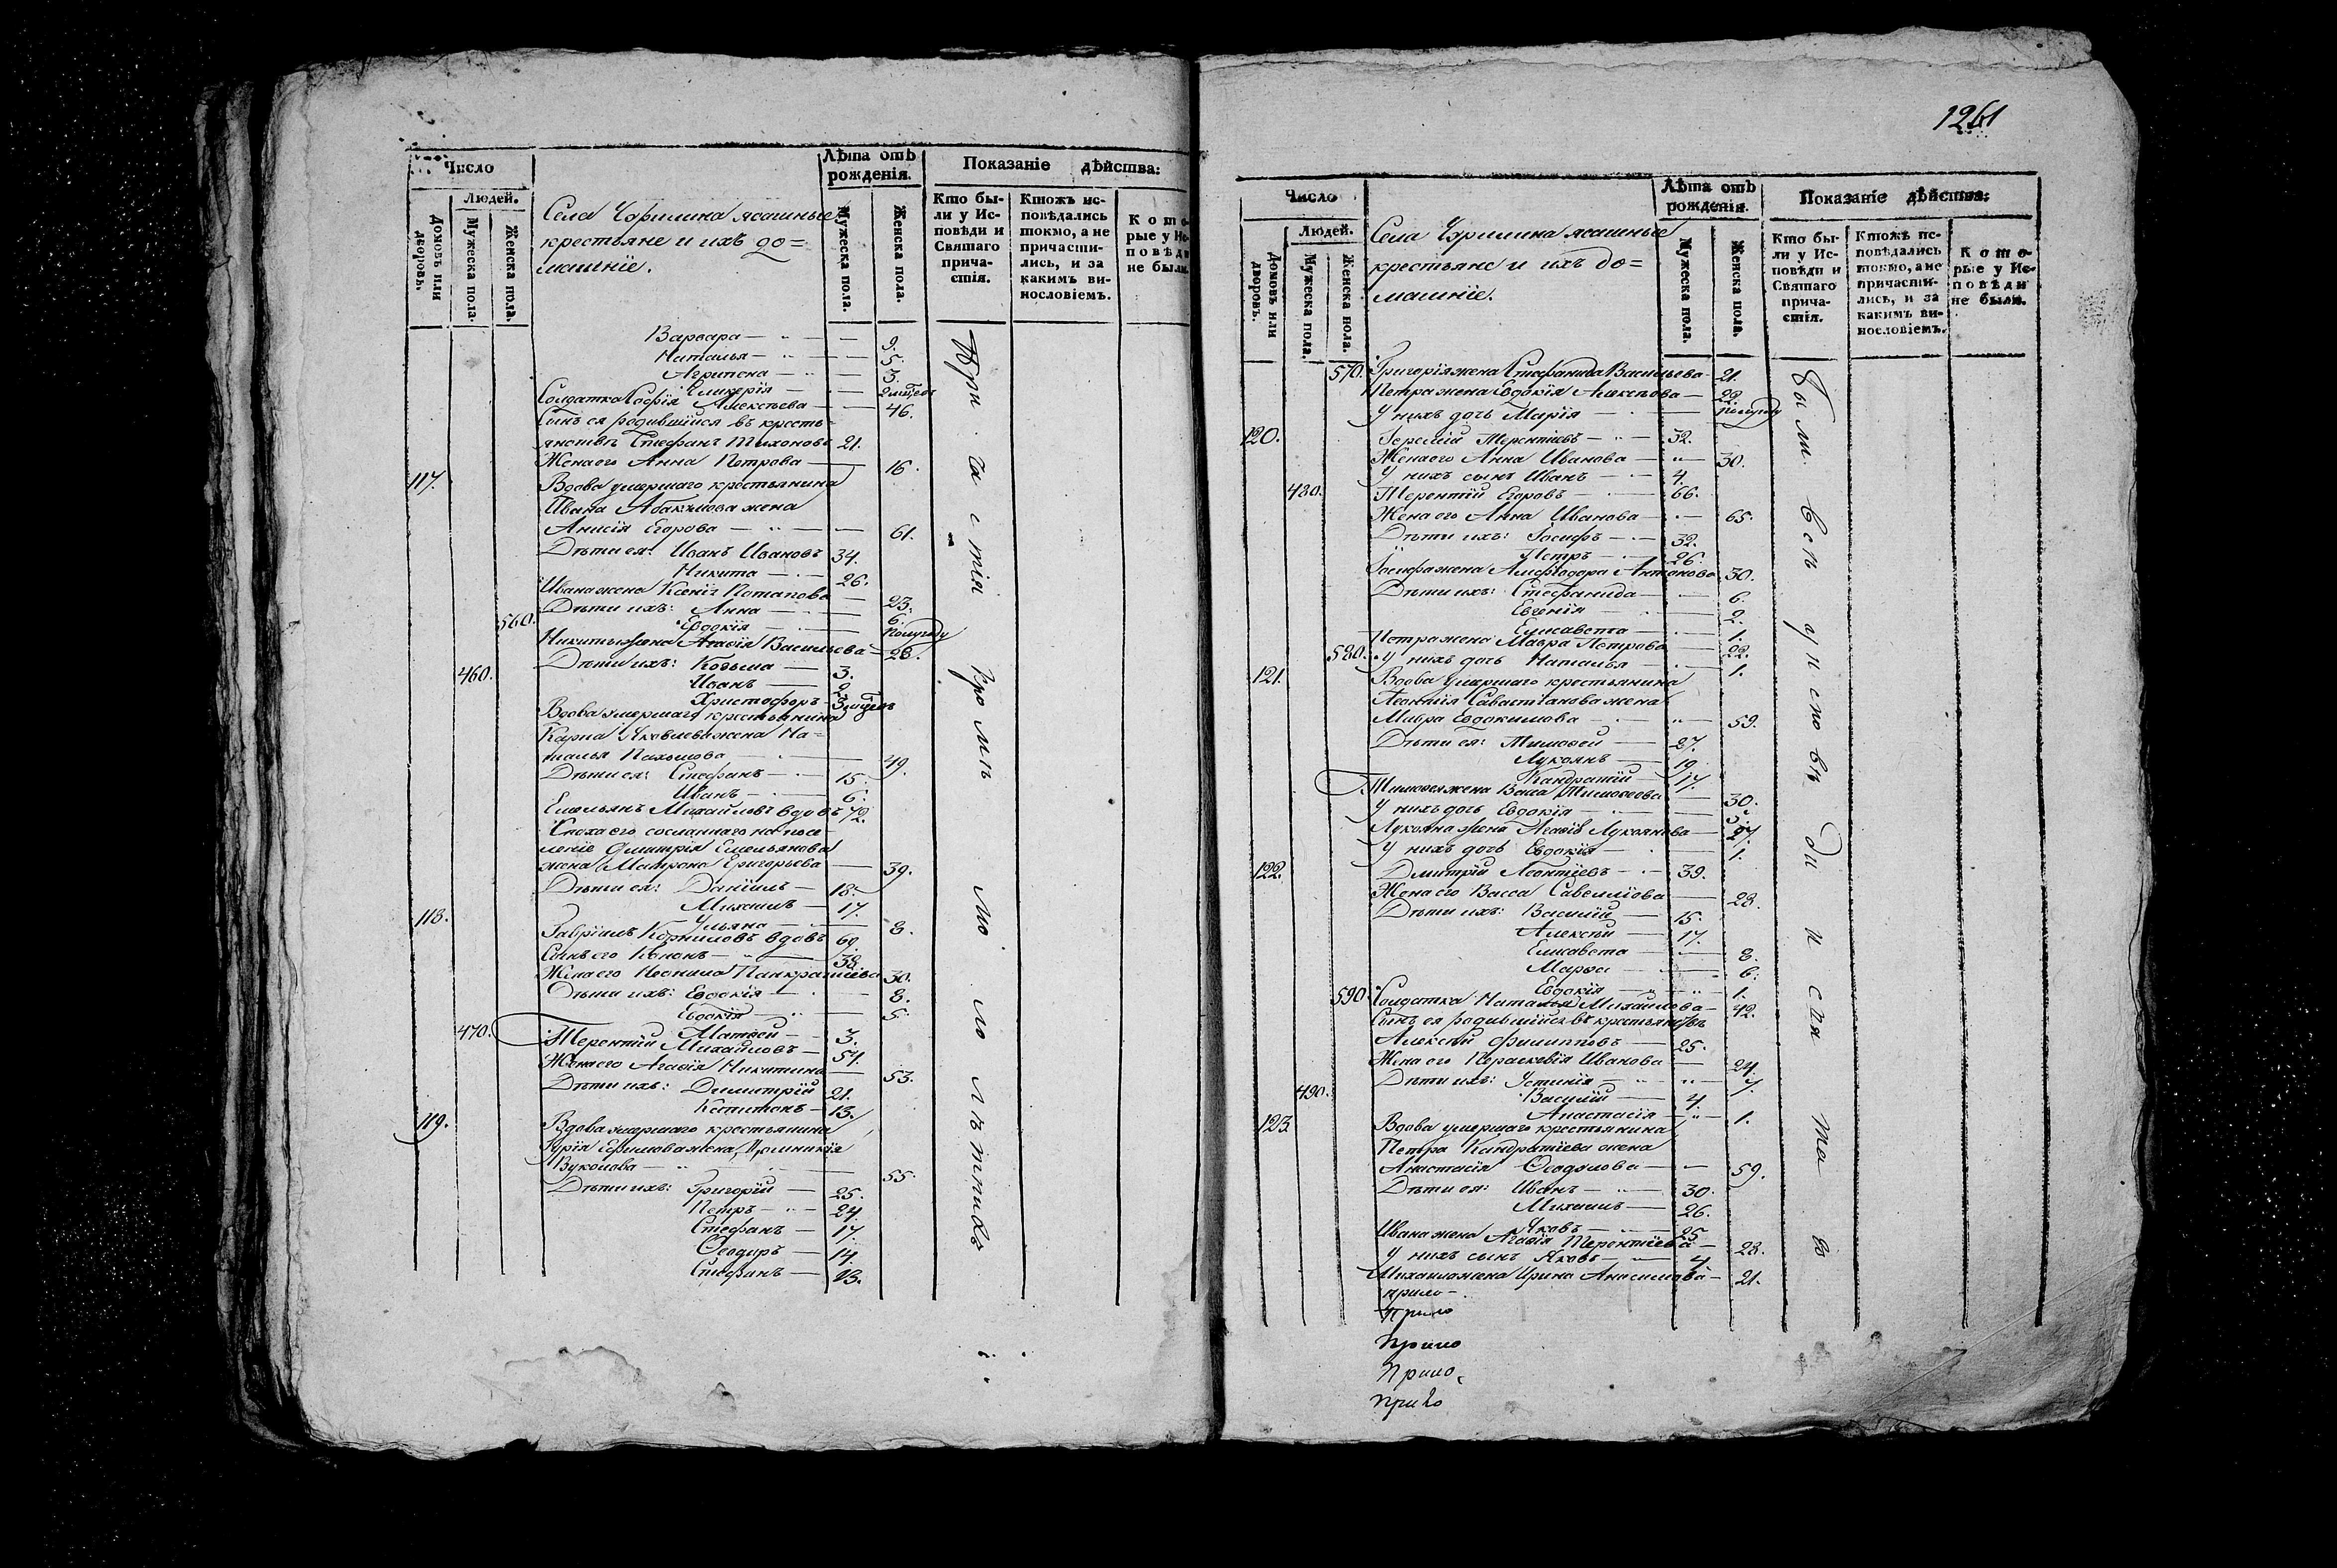 Число
Людей.
Домовъ или дворовъ.
Мужеска пола.
Женска пола.
Села Чирилина ясашные
крестьяне и ихъ до=
машніе.
Лѣта отъ рожденія.
Мужеска пола.
Женска пола.
Показаніе дѣйства:
Кто бы-
ли у Ис-
повѣди и
Святаго
прича-
стія.
Ктожъ ис-
повѣдались
токмо, а не
причасти-
лись, и за
какимъ ви-
нословіемъ.
Кото-
рые у Ис-
повѣди
не были.
Варвара — 9.
Наталья — 5.
Агрипена — 3.
Гликерія —
Солдатка Софія Алексѣева — 46.
Сынъ ея родившійся въ кресть-
янствѣ Стефанъ Тихоновъ 21.
Жена его Анна Петрова — 16.
117. Вдова умершаго крестьянина
Ивана Абакумова жена
Анисія Егорова — 61.
Дѣти ея: Иванъ Ивановъ 34.
Никита — 26.
Ивана жена Ксенія Потапова — 23.
Дѣти ихъ: Анна — 6.
560. Евдокія — полугоду
Никиты жена Агафія Васильева — 26.
Дѣти ихъ: Козьма — 3.
460. Иванъ — 2.
Христофоръ —
Вдова умершаго крестьянина
Карпа Яковлева жена На=
талья Пахомова — 49.
Дѣти ея: Стефанъ — 15.
Иванъ — 6.
Емельянъ Михайловъ вдовъ 72.
Сноха его сосланнаго на посе-
леніе Димитрія Емельянова
жена Матрона Григорьева — 39.
Дѣти ея: Даніилъ — 18.
Михаилъ — 17.
Ульяна — 8.
118. Гавріилъ Корниловъ вдовъ 69.
Сынъ его Кононъ — 38.
Жена его Неонила Панкратіева 30.
Дѣти ихъ: Евдокія — 8.
Евдокія — 5.
470. Матвей — 3.
Терентій Михайловъ — 54.
Жена его Агафія Никитина — 53.
Дѣти ихъ: Димитрій 21.
Капитонъ — 13.
119. Вдова умершаго крестьянина
Гурія Ефимова жена
Вуколова — 55.
Дѣти ихъ: Григорій — 25.
Петръ — 24.
Стефанъ — 17.
Ѳеодоръ — 14.
Стефанъ — 13.
При ча стія по мло лѣтнихъ
1261
Число
Людей.
Домовъ или дворовъ.
Мужеска пола.
Женска пола.
Села Чирилина ясашные
крестьяне и ихъ до=
машніе.
Лѣта отъ рожденія.
Мужеска пола.
Женска пола.
Показаніе дѣйства:
Кто бы-
ли у Ис-
повѣди и
Святаго
прича-
стія.
Ктожъ ис-
повѣдались
токмо, а не
причасти-
лись, и за
какимъ ви-
нословіемъ.
Кото-
рые у Ис-
повѣди
не были.
570. Григорія жена Стефанида Васильева — 21.
Петра жена Евдокія Алексѣева — 22.
У нихъ дочь Марія — полугоду
120. Іеремій Терентіевъ — 32.
Жена его Анна Иванова — 30.
У нихъ сынъ Иванъ — 4.
480. Терентій Егоровъ — 66.
Жена его Анна Иванова — 65.
Дѣти ихъ: Іосифъ — 32.
Петръ — 26.
Іосифа жена Антонова 30.
Дѣти ихъ: Стефанида — 6.
Евгенія — 2.
Елисавета — 1.
Петра жена Мавра Петрова — 22.
580. У нихъ дочь Наталья — 1.
121. Вдова умершаго крестьянина
Леонтія Савастіанова жена
Мавра Евдокимова — 59.
Дѣти ея: Тимофей — 27.
Лукоянъ — 19.
Кандратій — 17.
Тимофея жена Васса Тимофеева — 30.
У нихъ дочь Евдокія —
Лукояна жена Агафія Лукоянова —
У нихъ дочь Евдокія — 1.
122. Дмитрій Леонтіевъ — 39.
Жена его Васса Савелліова — 28.
Дѣти ихъ: Василій — 15.
Алексѣй — 17.
Елисавета — 8.
Марѳа — 6.
Евдокія — 1.
590. Солдатка Наталья Михайлова — 42.
Сынъ ея родившійся въ крестьянствѣ
Алексѣй Филипповъ — 25.
Жена его Параскевія Иванова — 24.
Дѣти ихъ: Устинія — 7.
490. Василій — 4.
Анастасія — 1.
123. Вдова умершаго крестьянина
Петра Кандратіева жена
Анастасія — 59.
Дѣти ея: Иванъ — 30.
Михаилъ — 26.
Яковъ — 25.
Ивана жена Агафія Терентіева — 28.
У нихъ сынъ Яковъ — 4.
Михаила жена Ирина Анисимова — 21.
Были всѣ у исповѣди и свята